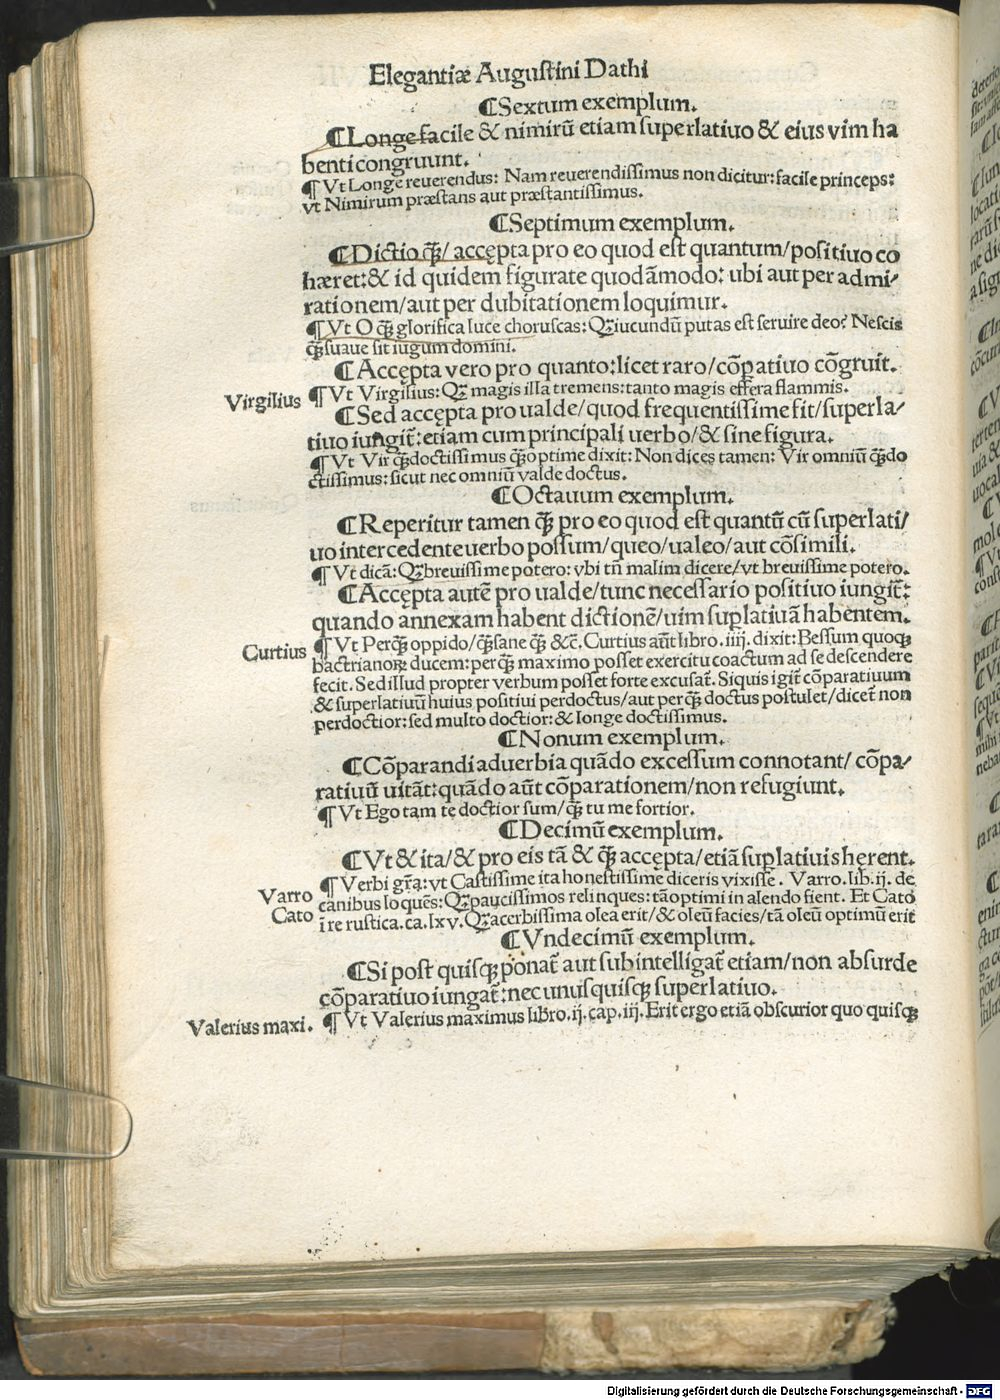 Elegantiæ Augustini Dathi
¶Sextum exemplum.
¶Longe facile & nimirũ etiam superlatiuo & eius vim ha
benti congruunt.
¶Vt Longe reuerendus: Nam reuerendissimus non dicitur: facile princeps:
vt Nimirum præstans aut præstantissimus.
¶Septimum exemplum.
¶Dictio q̃/ accępta pro eo quod est quantum/positiuo co
hæret: & id quidem figurate quodãmodo: ubi aut per admi/
rationem/aut per dubitationem loquimur.
¶Vt O q̃ glorifica luce choruscas: Qꝫ iucundũ putas est seruire deo? Nescis
q̃ suaue sit iugum domini.
¶Accępta vero pro quanto: licet raro/cõpatiuo cõgruit.
Virgilius ¶Vt Virgilius: Qꝫ magis illa tremens: tanto magis effera flammis.
¶Sed accępta pro ualde/quod frequentissime fit/superla/
tiuo iungit̃: etiam cum principali uerbo/& sine figura.
¶Vt Vir q̃doctissimus q̃optime dixit: Non dices tamen: Vir omniũ q̃do
ctissimus: sicut nec omniũ valde doctus.
¶Octauum exemplum.
¶Reperitur tamen q̃ pro eo quod est quantũ cũ superlati/
uo intercedente uerbo possum/queo/ualeo/aut cõsimili.
¶Vt dicã: Qꝫ breuissime potero: vbi tñ malim dicere/vt breuissime potero.
¶Accępta autẽ pro ualde/tunc necessario positiuo iungit̃:
quando annexam habent dictionẽ/uim suplatiuã habentem.
Curtius ¶Vt Perq̃ oppido/q̃sane q̃ &c. Curtius aũt libro.iiij. dixit: Bessum quoqꝫ
bactrianoꝝ ducem: perq̃ maximo posset exercitu coactum ad se descendere
fecit. Sed illud propter verbum posset forte excusat̃. Siquis igit̃ cõparatiuum
& superlatiuũ huius positiui perdoctus/aut perq̃ doctus postulet/dicet̃ non
perdoctior: sed multo doctior: & longe doctissimus.
¶Nonum exemplum.
¶Cõparandi aduerbia quãdo excessum connotant/ cõpa/
ratiuũ uitãt: quãdo aũt cõparationem/non refugiunt.
¶Vt Ego tam te doctior sum/q̃ tu me fortior.
¶Decimũ exemplum.
¶Vt & ita/& pro eis tã & q̃ accępta/etiã suplatiuis hęrent.
¶Verbi grã: vt Castissime ita honestissime diceris vixisse. Varro.lib.ij. de
Varro canibus loquẽs: Qꝫ paucissimos relinques: tã optimi in alendo fient. Et Cato
Cato ĩ re rustica.ca.lxv. Qꝫ acerbissima olea erit/& oleũ facies/tã oleũ optimũ erit
¶Vndecimũ exemplum.
¶Si post quisqꝫ ponat̃ aut subintelligat̃ etiam/non absurde
cõparatiuo iungat̃: nec unusquisqꝫ superlatiuo.
Valerius maxi. ¶Vt Valerius maximus libro.ij. cap.iij. Erit ergo etiã obscurior quo quisqꝫ
Digitalisierung gefördert durch die Deutsche Forschungsgemeinschaft - DFG